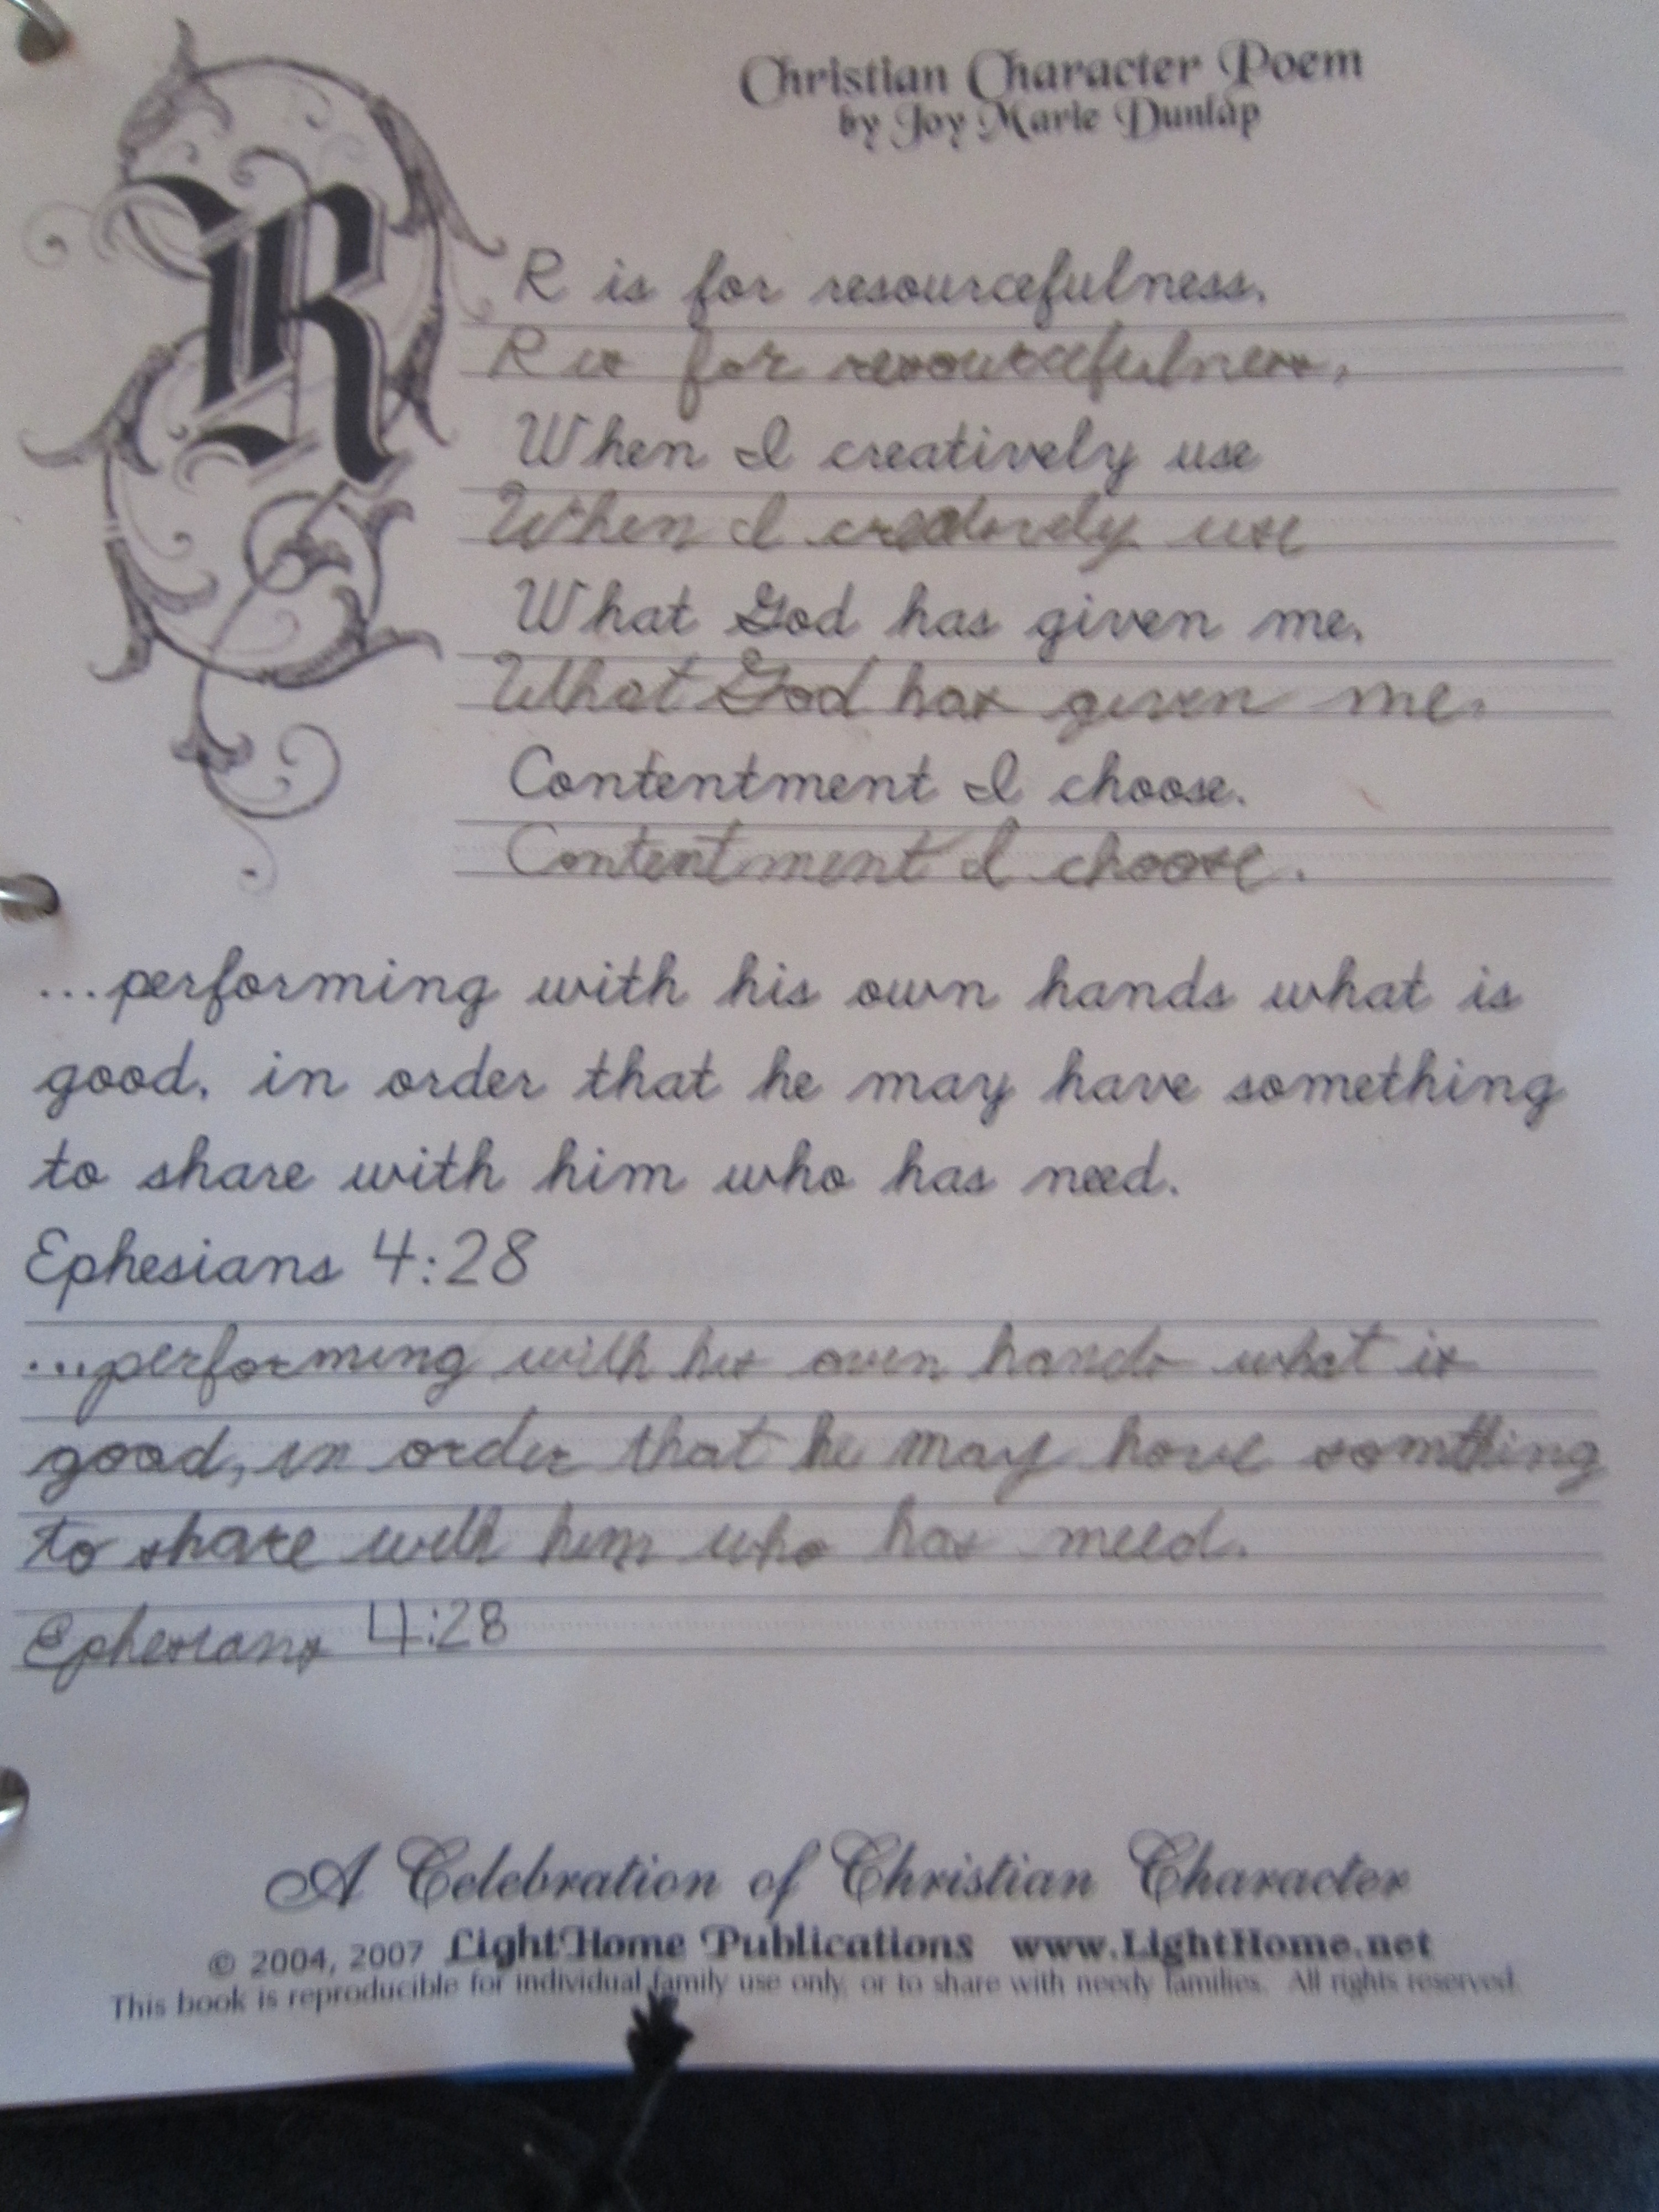 Christian Character Poem
by Joy Marie Dunlap
R
R is for resourcefulness.
R is for resourcefulness,
When I creatively use
When I creatively use
What God has given me,
What God has given me,
Contentment I choose.
Contentment I choose.
...performing with his own hands what is
good, in order that he may have something
to share with him who has need.
Ephesians 4:28
...performing with his own hands what is
good, in order that he may have somthing
to share with him who has need.
Ephesians 4:28
A Celebration of Christian Character
© 2004, 2007 LightHome Publications www.LightHome.net
This book is reproducible for individual family use only, or to share with needy families. All rights reserved.